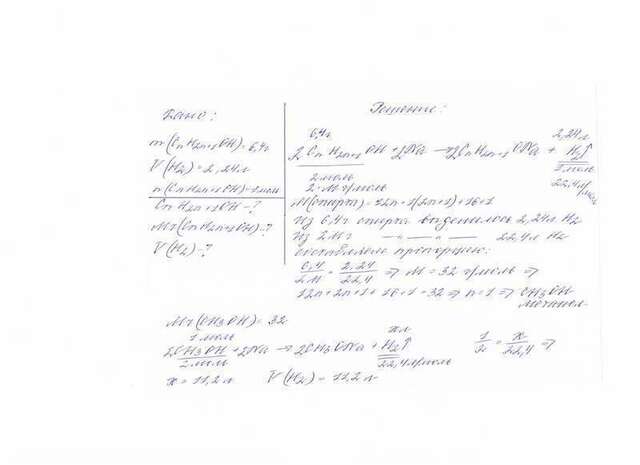 Дано:
m(CnH2n+1OH)=6,4г
V(H2)=2,24л
n(CnH2n+1OH)=1моль
CnH2n+1OH-?
Mr(CnH2n+1OH)-?
V(H2)-?
Решение:
6,4г 2,24л
2CnH2n+1OH+2Na→2CnH2n+1ONa + H2↑
2моль 1моль
2·M г/моль 22,4л/моль
M(спирта)=12n+1(2n+1)+16+1
Из 6,4г спирта выделилось 2,24л H2
Из 2M г —"—"— 22,4л H2
составляем пропорцию:
6,4/2M = 2,24/22,4 ⇒ M = 32 г/моль ⇒
12n+2n+1+16+1=32⇒n=1⇒CH3OH
метанол
Mr(CH3OH)=32
1моль xл
2CH3OH+2Na→2CH3ONa+H2↑ 1/2 = x/22,4 ⇒
2моль 22,4л/моль
x=11,2л V(H2)=11,2л